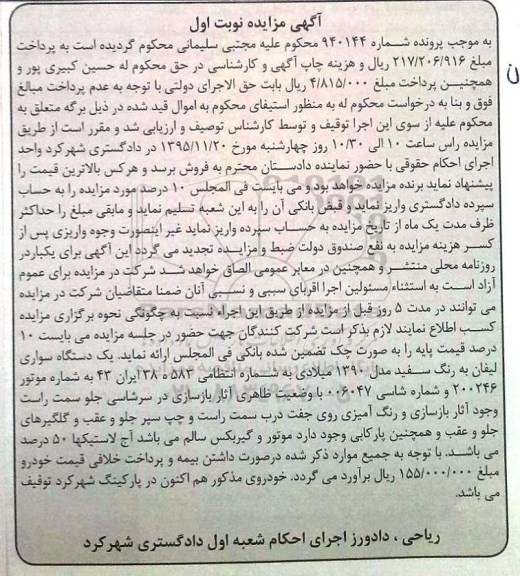 آگهی مزایده نوبت اول
به موجب پرونده شماره ۹۴۰۱۴۴ محکوم علیه مجتبی سلیمانی محکوم گردیده است به پرداخت
مبلغ ۲۱۷/۲۰۶/۹۱۶ ریال و هزینه چاپ آگهی و کارشناسی در حق محکوم له حسین کبیری پور و
همچنین پرداخت مبلغ ۴/۸۱۵/۰۰۰ ریال بابت حق الاجرای دولتی با توجه به عدم پرداخت مبالغ
فوق و بنا به درخواست محکوم له به منظور استیفای محکوم به اموال قید شده در ذیل برگه متعلق به
محکوم علیه از سوی این اجرا توقیف و توسط کارشناس توصیف و ارزیابی شد و مقرر است از طریق
مزایده راس ساعت ۱۰ الی ۱۰/۳۰ روز چهارشنبه مورخ ۱۳۹۵/۱۱/۲۰ در دادگستری شهرکرد واحد
اجرای احکام حقوقی با حضور نماینده دادستان محترم به فروش برسد و هرکس بالاترین قیمت را
پیشنهاد نماید برنده مزایده خواهد بود و می بایست فی المجلس ۱۰ درصد مورد مزایده را به حساب
سپرده دادگستری واریز نماید و قبض بانکی آن را به این شعبه تسلیم نماید و مابقی مبلغ را حداکثر
ظرف مدت یک ماه از تاریخ مزایده به حساب سپرده واریز نماید غیر اینصورت وجوه واریزی پس از
کسر هزینه مزایده به نفع صندوق دولت ضبط و مزایده تجدید می گردد این آگهی برای یکبار در
روزنامه محلی منتشر و همچنین در معابر عمومی الصاق خواهد شد شرکت در مزایده برای عموم
آزاد است به استثناء مسئولین اجرا اقربای سببی و نسبی آنان ضمنا متقاضیان شرکت در مزایده
می توانند در مدت ۵ روز قبل از مزایده از طریق این اجراء نسبت به چگونگی نحوه برگزاری مزایده
کسب اطلاع نمایند لازم بذکر است شرکت کنندگان جهت حضور در جلسه مزایده می بایست ۱۰
درصد قیمت پایه را به صورت چک تضمین شده بانکی فی المجلس ارائه نماید. یک دستگاه سواری
لیفان به رنگ سفید مدل ۱۳۹۰ میلادی به شماره انتظامی ۵۸۳ ه ۳۸ ایران ۴۳ به شماره موتور
۲۰۰۲۴۶ و شماره شاسی ۰۰۶۰۴۷ با وضعیت ظاهری آثار بازسازی در سرشاسی جلو سمت راست
وجود آثار بازسازی و رنگ آمیزی روی جفت درب سمت راست و چپ سپر جلو و عقب و گلگیرهای
جلو و عقب و همچنین پارکابی وجود دارد موتور و گیربکس سالم می باشد آج لاستیکها ۵۰ درصد
می باشد. با توجه به جمیع موارد ذکر شده درصورت داشتن بیمه و پرداخت خلافی قیمت خودرو
مبلغ ۱۵۵/۰۰۰/۰۰۰ ریال برآورد می گردد. خودروی مذکور هم اکنون در پارکینگ شهرکرد توقیف
می باشد.
ریاحی ، دادورز اجرای احکام شعبه اول دادگستری شهرکرد